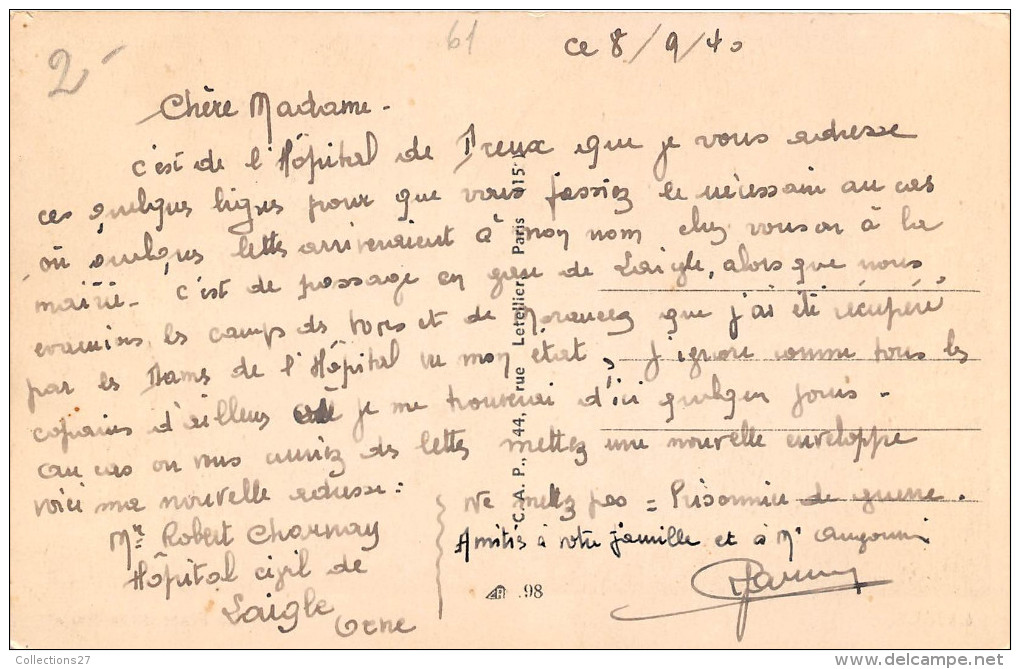 2-
61
ce 8/9/40
Chère Madame -
c'est de l'Hôpital de Dreux que je vous adresse
ces quelques lignes pour que vous fassiez le nécessair au cas
où quelques letts arriveraient à mon nom chez vous ou à la
mairie - c'est de passage en gare de Laigle, alors que nous
évacuions les camps de Voves et de Morancez que j'ai été récupéré
par les Dames de l'Hôpital vu mon état, j'ignore comme tous les
copains d'ailleurs où je me trouverai d'ici quelques jours -
au cas où vous auriez des letts mettez une nouvelle enveloppe
voici ma nouvelle adresse :
Mr Robert Charnay
Hôpital civil de
Laigle
Orne
Ne mettez pas = Prisonnier de guerre.
Amitiés à votre famille et à Mr
C. A. P., 44, rue Letellier, Paris (15e)
.98
Collections27
www.delcampe.net